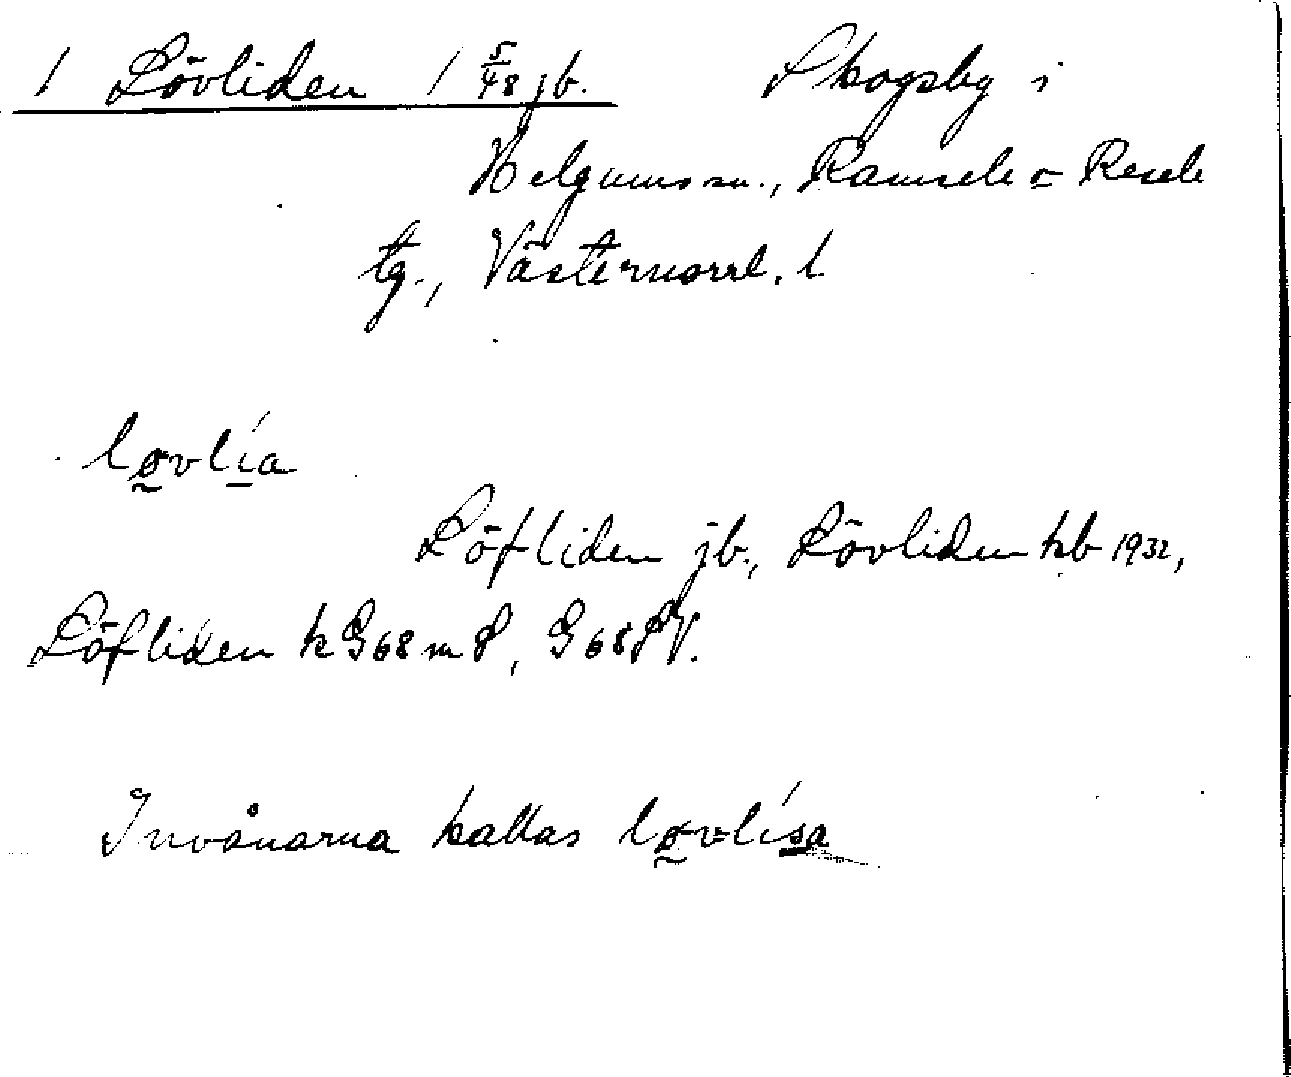 1 Lövliden 1 5/48 jb. Skogsby i
Helgums sn., Ramsele o Resele
tg., Västernorrl. l
løvlía
Löfliden jb., Lövliden kb 1932,
Löfliden k G68 m 8, G68 SV.
Invånarna kallas løvlísa